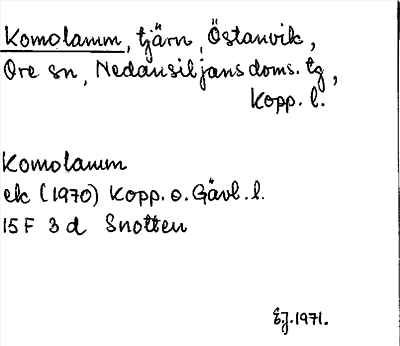 Komolamm, tjärn, Östanvik,
Ore sn, Nedansiljans doms. tg,
Kopp. l.
Komolamm
ek (1970) Kopp. o. Gävl. l.
15 F 3 d Snotten
E.J. 1971.